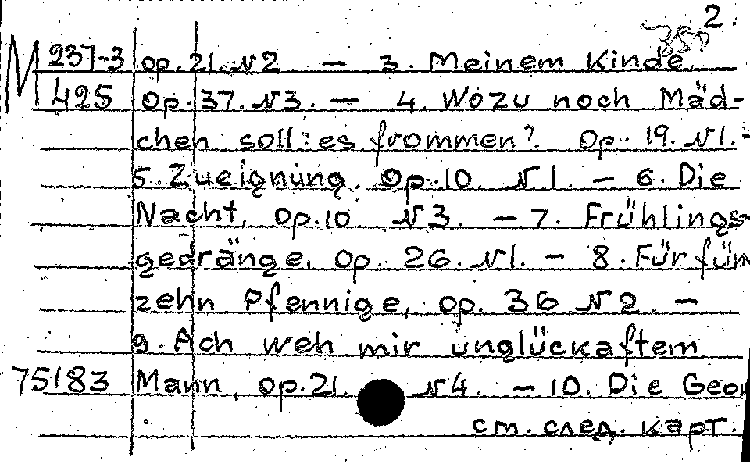 2.
M 237-3 op. 21. N2 — 3. Meinem Kinde.
425 Op. 37. N3. — 4. Wozu noch Mäd-
chen soll es frommen? Op. 19. N1.-
5. Zueignung. Op. 10. N1. — 6. Die
Nacht, op. 10 N3. — 7. Frühlings-
gedränge, op. 26. N1. — 8. Für fün
zehn Pfennige, op. 36 N2. —
9. Ach weh mir unglückaftem
75183 Mann, op. 21. N4. — 10. Die Geor
см. след. карт.